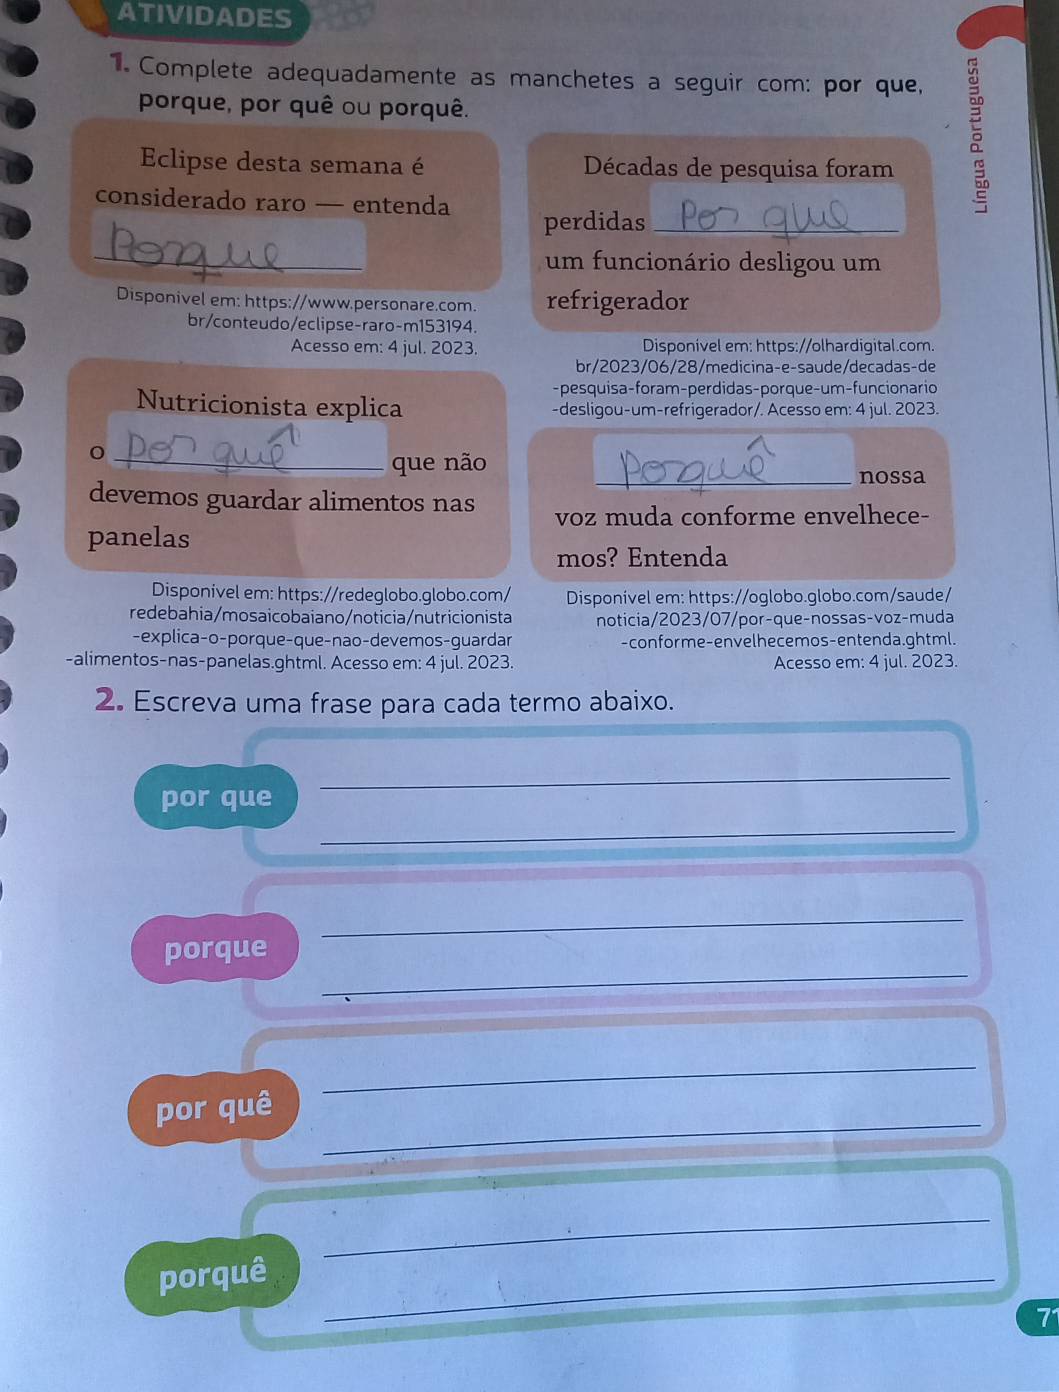 ATIVIDADES
1. Complete adequadamente as manchetes a seguir com: por que,
porque, por quê ou porquê.
Eclipse desta semana é
considerado raro — entenda
Porque
Disponível em: https://www.personare.com.
br/conteudo/eclipse-raro-m153194.
Acesso em: 4 jul. 2023.
Décadas de pesquisa foram
perdidas Por que
um funcionário desligou um
refrigerador
Disponível em: https://olhardigital.com.
br/2023/06/28/medicina-e-saude/decadas-de
-pesquisa-foram-perdidas-porque-um-funcionario
-desligou-um-refrigerador/. Acesso em: 4 jul. 2023.
Nutricionista explica
o por quê que não
devemos guardar alimentos nas
panelas
Disponível em: https://redeglobo.globo.com/
redebahia/mosaicobaiano/noticia/nutricionista
-explica-o-porque-que-nao-devemos-guardar
-alimentos-nas-panelas.ghtml. Acesso em: 4 jul. 2023.
Porquê nossa
voz muda conforme envelhece-
mos? Entenda
Disponível em: https://oglobo.globo.com/saude/
noticia/2023/07/por-que-nossas-voz-muda
-conforme-envelhecemos-entenda.ghtml.
Acesso em: 4 jul. 2023.
2. Escreva uma frase para cada termo abaixo.
por que
porque
por quê
porquê
Língua Portuguesa
71